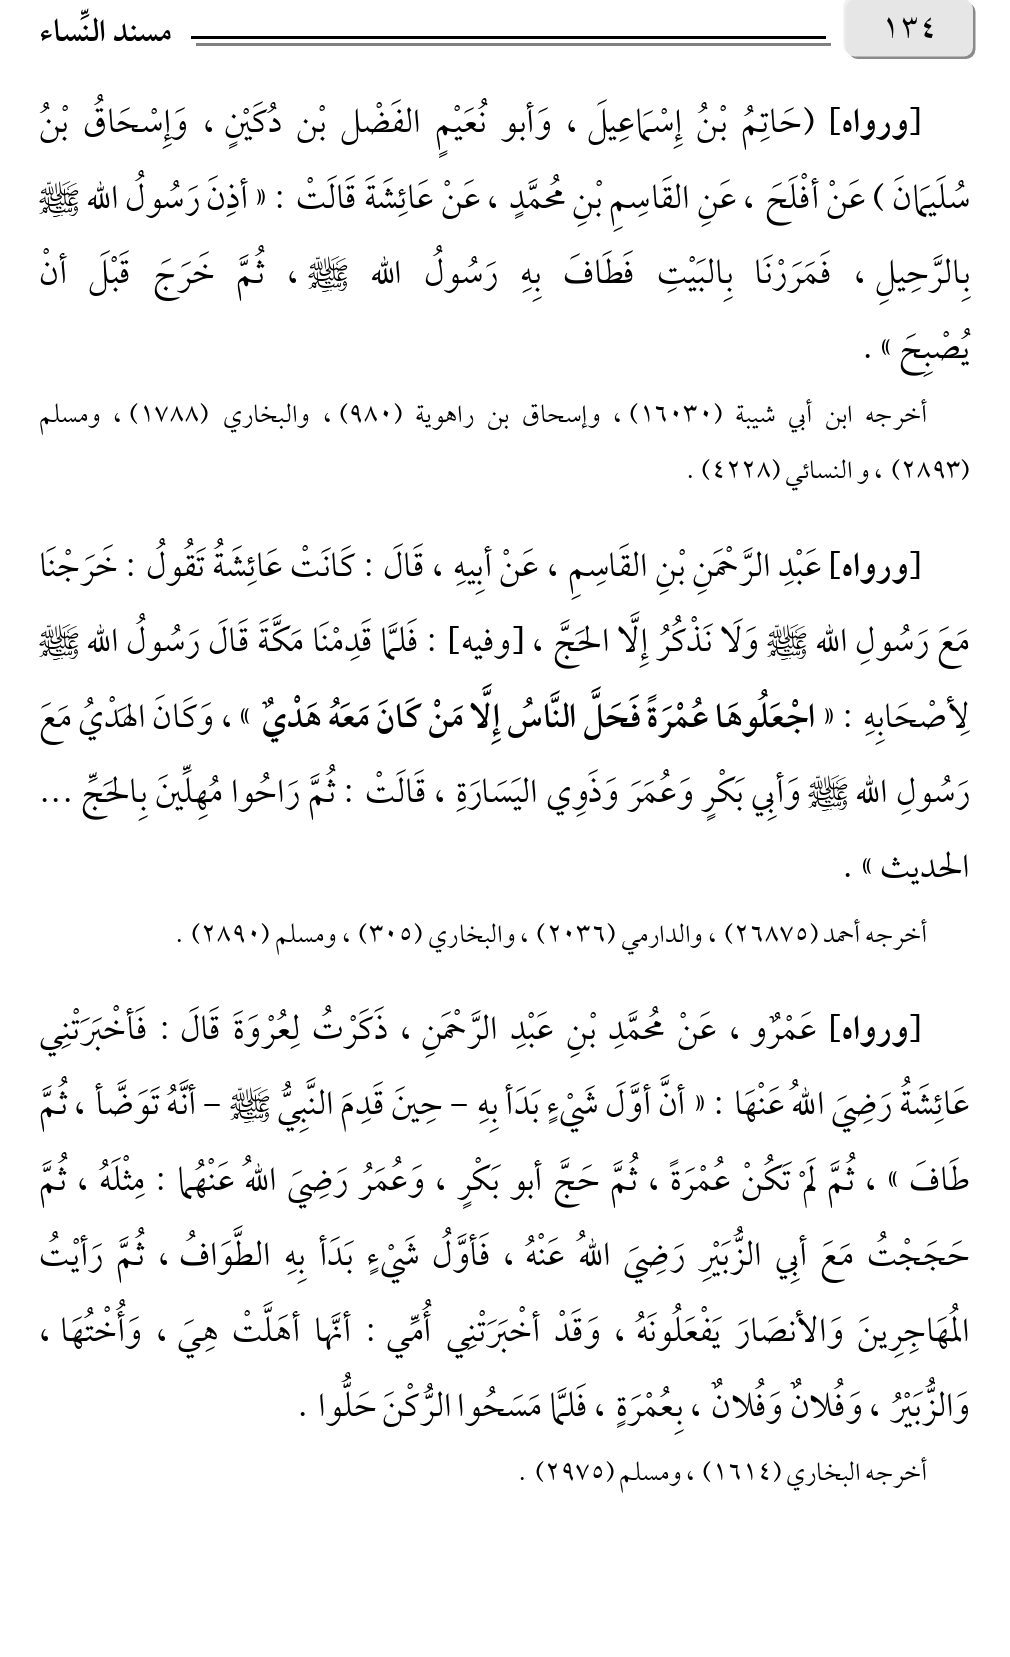 ١٣٤
مسند النِّساء
[ورواه] (حَاتِمُ بْنُ إِسْمَاعِيلَ ، وَأبو نُعَيْمٍ الفَضْل بْن دُكَيْنٍ ، وَإِسْحَاقُ بْنُ
سُلَيَمَانَ ) عَنْ أفْلَحَ ، عَنِ القَاسِمِ بْنِ مُحمَّدٍ ، عَنْ عَائِشَةَ قَالَتْ : « أذِنَ رَسُولُ الله ﷺ
بِالرَّحِيلِ ، فَمَرَرْنَا بِالبَيْتِ فَطَافَ بِهِ رَسُولُ الله ﷺ ، ثُمَّ خَرَجَ قَبْلَ أنْ
يُصْبِحَ » .
أخرجه ابن أبي شيبة (١٦٠٣٠) ، وإسحاق بن راهوية (٩٨٠) ، والبخاري (١٧٨٨) ، ومسلم
(٢٨٩٣) ، و النسائي (٤٢٢٨) .
[ورواه] عَبْدِ الرَّحْمَنِ بْنِ القَاسِمِ ، عَنْ أبِيهِ ، قَالَ : كَانَتْ عَائِشَةُ تَقُولُ : خَرَجْنَا
مَعَ رَسُولِ الله ﷺ وَلَا نَذْكُرُ إِلَّا الحَجَّ ، [وفيه] : فَلمَّا قَدِمْنَا مَكَّةَ قَالَ رَسُولُ الله ﷺ
لِأصْحَابِهِ : « اجْعَلُوهَا عُمْرَةً فَحَلَّ النَّاسُ إِلَّا مَنْ كَانَ مَعَهُ هَدْيٌ » ، وَكَانَ الهَدْيُ مَعَ
رَسُولِ الله ﷺ وَأبِي بَكْرٍ وَعُمَرَ وَذَوِي اليَسَارَةِ ، قَالَتْ : ثُمَّ رَاحُوا مُهِلِّينَ بِالحَجِّ ...
الحديث » .
أخرجه أحمد (٢٦٨٧٥) ، والدارمي (٢٠٣٦) ، والبخاري (٣٠٥) ، ومسلم (٢٨٩٠) .
[ورواه] عَمْرٌو ، عَنْ مُحمَّدِ بْنِ عَبْدِ الرَّحْمَنِ ، ذَكَرْتُ لِعُرْوَةَ قَالَ : فَأخْبَرَتْنِي
عَائِشَةُ رَضِيَ اللهُ عَنْهَا : « أنَّ أوَّلَ شَيْءٍ بَدَأ بِهِ – حِينَ قَدِمَ النَّبِيُّ ﷺ – أنَّهُ تَوَضَّأ ، ثُمَّ
طَافَ » ، ثُمَّ لَمْ تَكُنْ عُمْرَةً ، ثُمَّ حَجَّ أبو بَكْرٍ ، وَعُمَرُ رَضِيَ اللهُ عَنْهُما : مِثْلَهُ ، ثُمَّ
حَجَجْتُ مَعَ أبِي الزُّبَيْرِ رَضِيَ اللهُ عَنْهُ ، فَأوَّلُ شَيْءٍ بَدَأ بِهِ الطَّوَافُ ، ثُمَّ رَأيْتُ
المُهَاجِرِينَ وَالأنصَارَ يَفْعَلُونَهُ ، وَقَدْ أخْبَرَتْنِي أُمِّي : أنَّها أهَلَّتْ هِيَ ، وَأُخْتُهَا ،
وَالزُّبَيْرُ ، وَفُلانٌ وَفُلانٌ ، بِعُمْرَةٍ ، فَلمَّا مَسَحُوا الرُّكْنَ حَلُّوا .
أخرجه البخاري (١٦١٤) ، ومسلم (٢٩٧٥) .